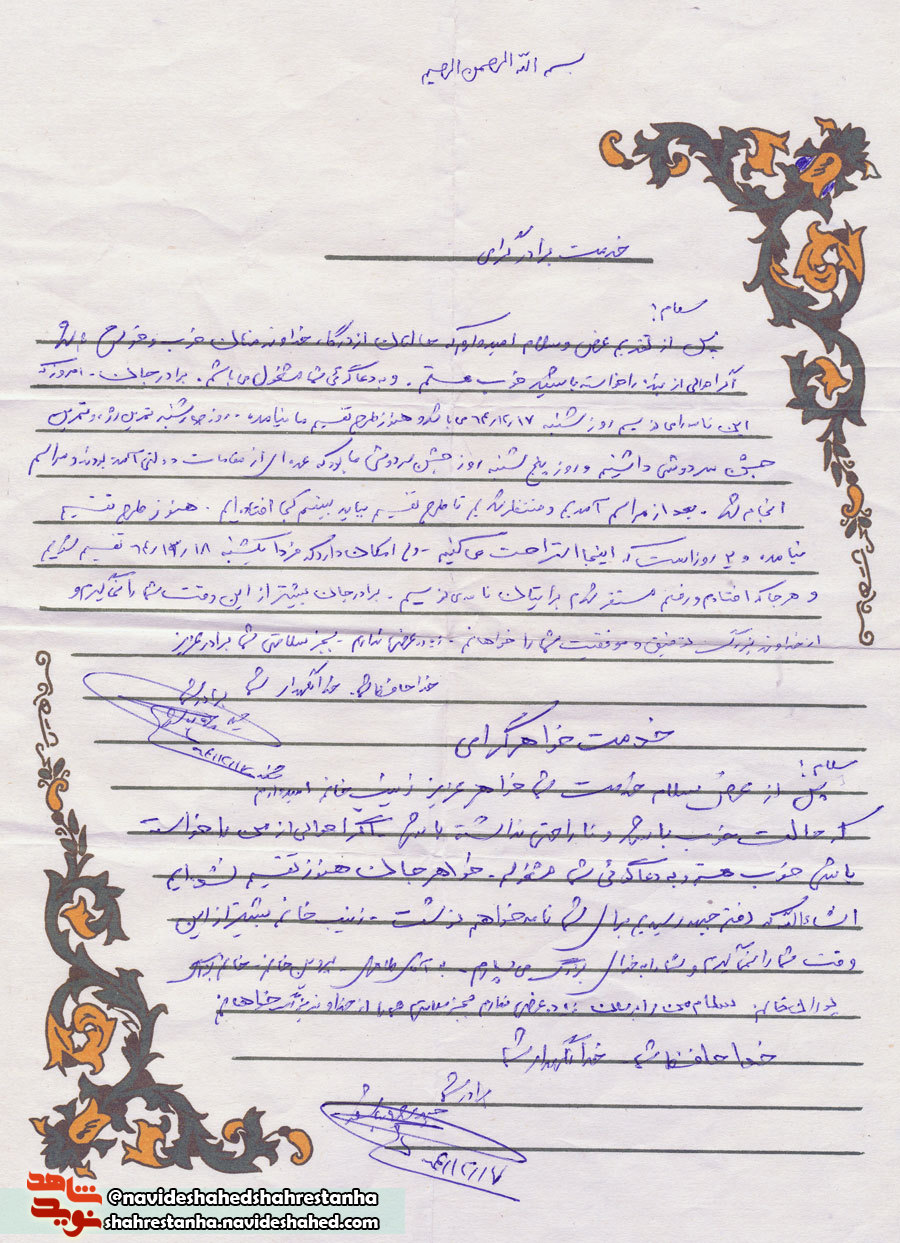 بسم الله الرحمن الرحیم
خدمت برادر گرامی
سلام!
پس از تقدیم عرض و سلام امیدوارم که حالتان از درگاه خداوند منان خوب و خرم
اگر احوالی از بنده را خواسته باشید خوب هستم. و به دعاگوئی شما مشغول می باشم. برادر جان. امروز که
این نامه را می نویسم روز شنبه ۶۴/۱۲/۱۷ می باشد و هنوز طرح تقسیم ما نیامده. روز چهارشنبه تمرین رژه و تمرین
جشن سردوشی داشتیم و روز پنج شنبه روز جشن سردوشی ما بود که عده ای از مقامات دولتی آمده بودند و مراسم
انجام شد. بعد از مراسم آمدیم و منتظر شدیم تا طرح تقسیم بیاید ببینیم کجا افتاده ایم. هنوز طرح تقسیم
نیامده و ۲ روز است که اینجا استراحت می کنیم. ولی امکان دارد که فردا یکشنبه ۱۸ تقسیم شویم
و هر جا که افتادم و رفتم مستقر شدم برایتان نامه می نویسم. برادر جان بیشتر از این وقت شما را نمی گیرم و
از خداوند بزرگ توفیق و موفقیت شما را خواهانم. دیگر عرضی ندارم. بجز سلامتی شما برادر عزیز
خداحافظ شما. خدانگهدار شما برادر شما
شنبه ۶۴/۱۲/۱۷
خدمت خواهر گرامی
سلام!
پس از عرض سلام خدمت شما خواهر عزیز زینب خانم امیدوارم
که حالت خوب باشد و ناراحتی نداشته باشی. اگر احوالی از من را خواسته
باشی خوب هستم و به دعاگوئی شما مشغولم. خواهر جان هنوز تقسیم نشده ایم
انشاءالله که دفتر جدید رسیدیم برای شما نامه خواهم نوشت. زینب خانم بیشتر از این
وقت شما را نمی گیرم و شما را به خدای بزرگ می سپارم. به
خانم سلام من را برسان دیگر عرضی ندارم بجز سلامتی شما را از خداوند بزرگ خواهانم
خداحافظ شما. خدانگهدار شما
برادر شما
۶۴/۱۲/۱۷
نوید شاهد
@navideshahedshahrestanha
shahrestanha.navideshahed.com